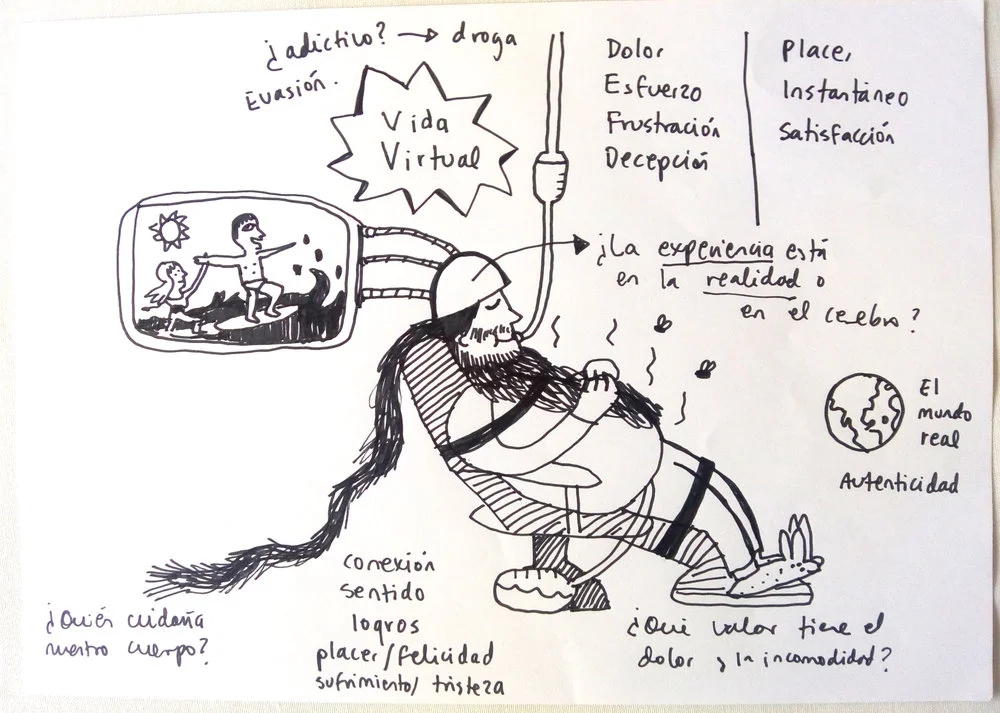 ¿adictivo? → droga
Evasión.
Vida
Virtual
Dolor
Esfuerzo
Frustración
Decepción
placer
Instantáneo
satisfacción
¿La experiencia está
en la realidad o
en el cerebro?
El
mundo
real
Autenticidad
¿Quién cuidaría
nuestro cuerpo?
conexión
sentido
logros
placer/felicidad
sufrimiento/ tristeza
¿Qué valor tiene el
dolor y la incomodidad?